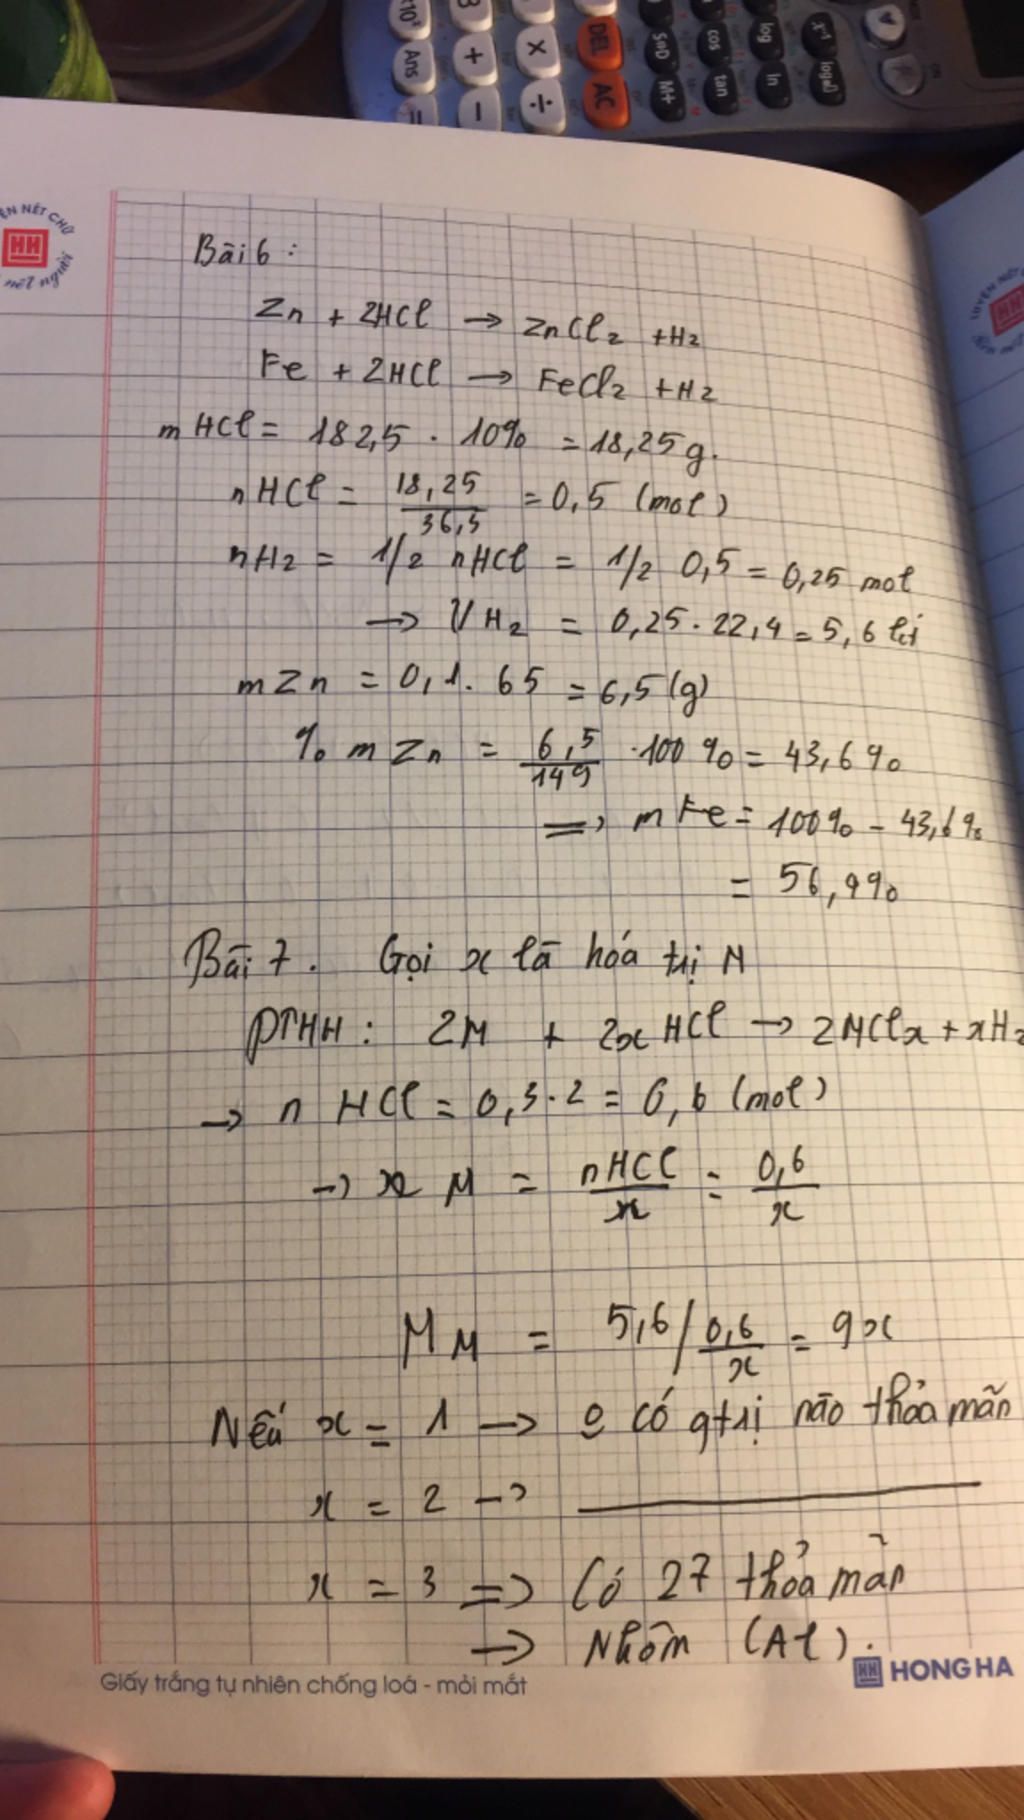 ×10ˣ
3
DEL
SnD
cos
log
x⁻¹
Ans
+
×
AC
M+
tan
ln
loga
=
−
÷
ỆN NÉT CHỮ
HH
nét người
LUYỆN NÉT
HH
Bài 6 :
Zn + 2HCl → ZnCl₂ + H₂
Fe + 2HCl → FeCl₂ + H₂
m HCl = 182,5 . 10% = 18,25g.
nHCl = 18,25/36,5 = 0,5 (mol)
nH₂ = 1/2 nHCl = 1/2 0,5 = 0,25 mol
→ VH₂ = 0,25 . 22,4 = 5,6 lít
mZn = 0,1 . 65 = 6,5 (g)
% m Zn = 6,5/149 . 100% = 43,6%
=> mFe = 100% - 43,6%
= 56,4%
Bài 7. Gọi x là hóa trị M
PTHH : 2M + 2xHCl → 2MClx + xH₂
→ n HCl = 0,3 . 2 = 0,6 (mol)
→ M = nHCl/x = 0,6/x
M M = 5,6 / 0,6/x = 9x
Nếu x = 1 → 0 có gtrị nào thỏa mãn
x = 2 →
x = 3 => Có 27 thỏa mãn
→ Nhôm (Al).
Giấy trắng tự nhiên chống loá - mỏi mắt
HH HONG HA